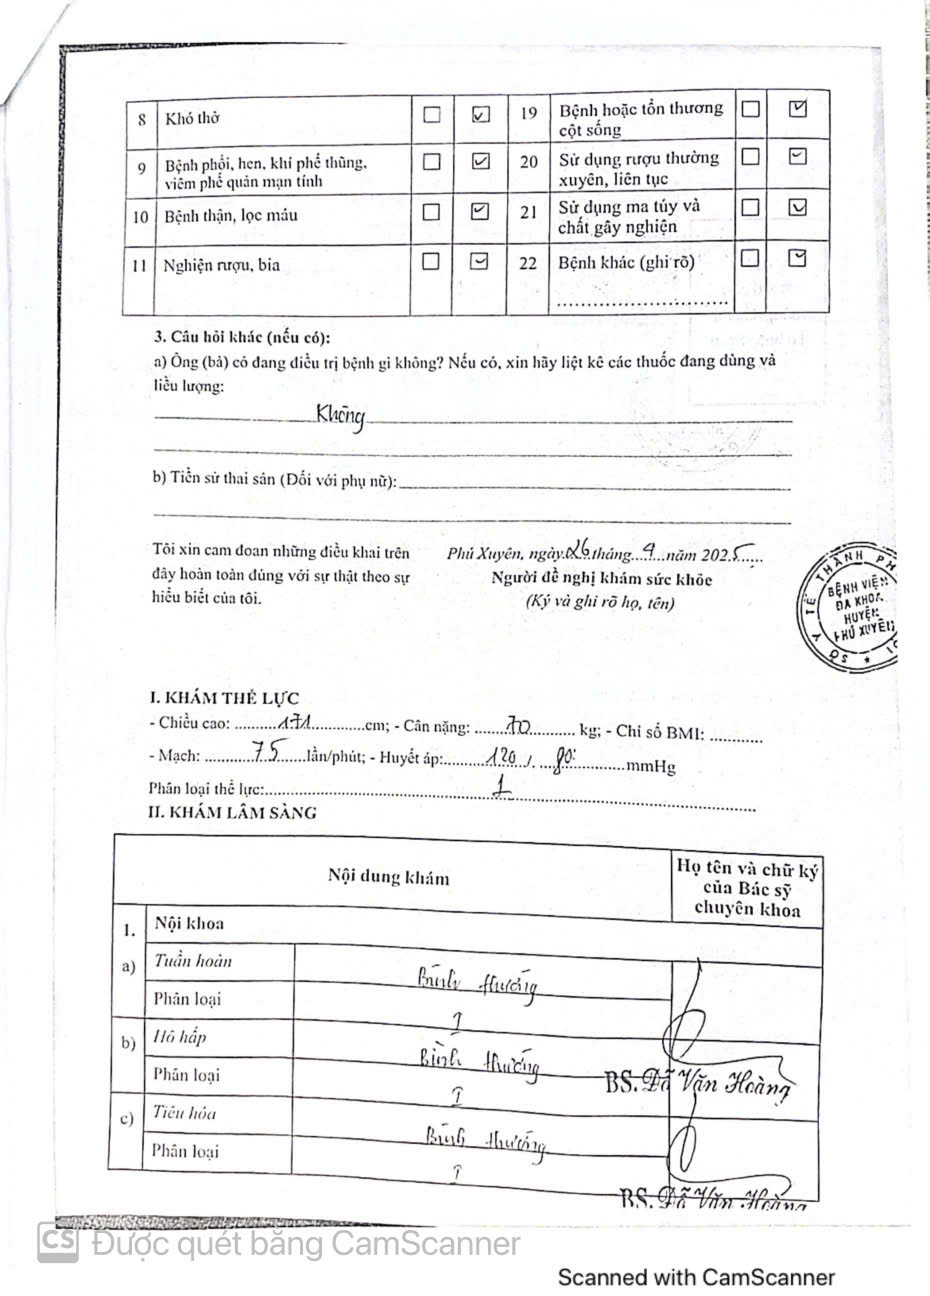 8 Khó thở ☐ ☑ 19 Bệnh hoặc tổn thương
cột sống
9 Bệnh phổi, hen, khí phế thũng, ☐ ☑ 20 Sử dụng rượu thường
viêm phế quản mạn tính xuyên, liên tục
10 Bệnh thận, lọc máu ☐ ☑ 21 Sử dụng ma túy và
chất gây nghiện
11 Nghiện rượu, bia ☐ ☑ 22 Bệnh khác (ghi rõ) ☐ ☑
3. Câu hỏi khác (nếu có):
a) Ông (bà) có đang điều trị bệnh gì không? Nếu có, xin hãy liệt kê các thuốc đang dùng và
liều lượng:
Không
b) Tiền sử thai sản (Đối với phụ nữ):
Tôi xin cam đoan những điều khai trên
đây hoàn toàn đúng với sự thật theo sự
hiểu biết của tôi.
Phú Xuyên, ngày 26 tháng 9 năm 2025
Người đề nghị khám sức khỏe
(Ký và ghi rõ họ, tên)
SỞ Y TẾ THÀNH PH
BỆNH VIỆN
ĐA KHOA
HUYỆN
PHÚ XUYÊN
I. KHÁM THỂ LỰC
- Chiều cao: 171 cm; - Cân nặng: 70 kg; - Chỉ số BMI:
- Mạch: 75 lần/phút; - Huyết áp: 120 / 80 mmHg
Phân loại thể lực: 1
II. KHÁM LÂM SÀNG
Nội dung khám
Họ tên và chữ ký
của Bác sỹ
chuyên khoa
1. Nội khoa
a) Tuần hoàn Bình thường
Phân loại I
b) Hô hấp Bình thường
BS. Đỗ Văn Hoàng
Phân loại I
c) Tiêu hóa Bình thường
Phân loại I
BS. Đỗ Văn Hoàng
CS Được quét bằng CamScanner
Scanned with CamScanner